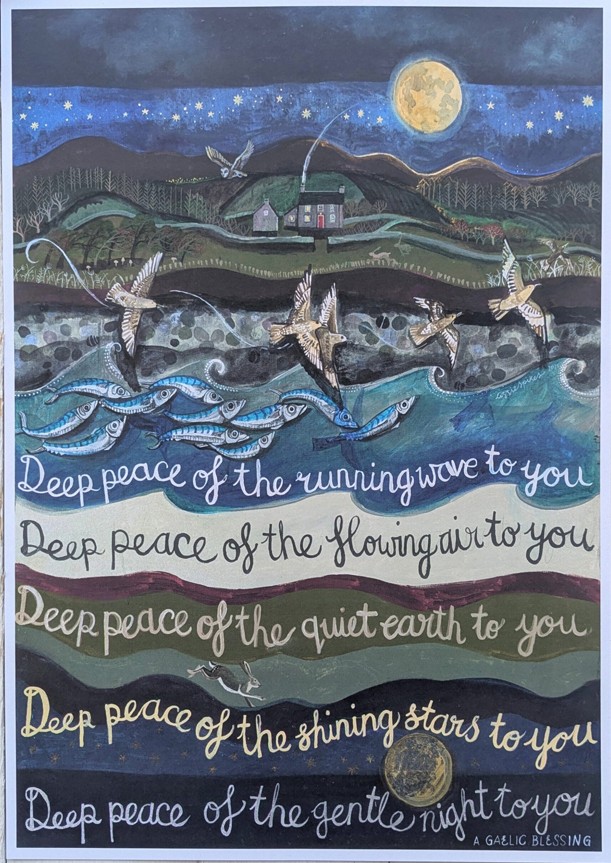 Deep peace of the running wave to you
Deep peace of the flowing air to you
Deep peace of the quiet earth to you
Deep peace of the shining stars to you
Deep peace of the gentle night to you
A GAELIC BLESSING